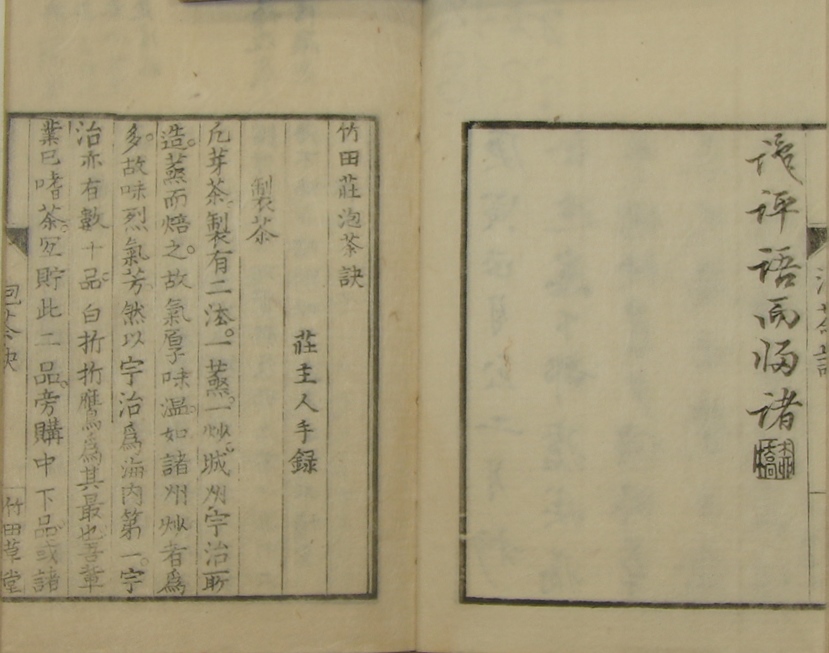 评語而歸諸
竹田莊泡茶訣
莊主人手録
製茶
凡芽茶製有二法。一蒸。一炒。城州宇治所
造。蒸而焙之。故氣厚味温。如諸州炒者爲
多。故味烈氣芳。然以宇治爲海内第一。宇
治亦有數十品。白折折鷹爲其最也。吾輩
業已嗜茶。冝貯此二品。旁購中下品。或諸
泡茶訣
竹田草堂